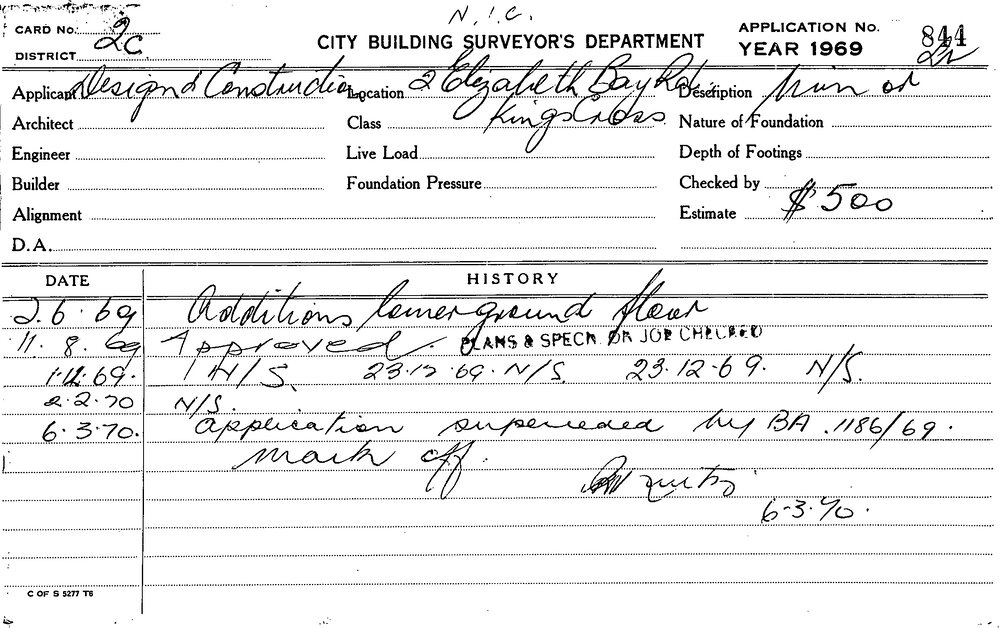 N.I.C.
CARD No. 2C
CITY BUILDING SURVEYOR'S DEPARTMENT
APPLICATION No. 844
DISTRICT
YEAR 1969
Applicant Design & Construction Location 2 Elizabeth Bay Rd. Description
Architect Class Kings Cross Nature of Foundation
Engineer Live Load Depth of Footings
Builder Foundation Pressure Checked by
Alignment Estimate $500
D.A.
DATE HISTORY
2.6.69 Additions lower ground floor
11.8.69 Approved. PLANS & SPECN. OR JOB CHECKED
1.12.69. N/S. 23.12.69. N/S. 23.12.69. N/S.
2.2.70 N/S.
6.3.70. Application superceded by BA.1186/69.
Mark off.
6.3.70.
C OF S 5277 T6